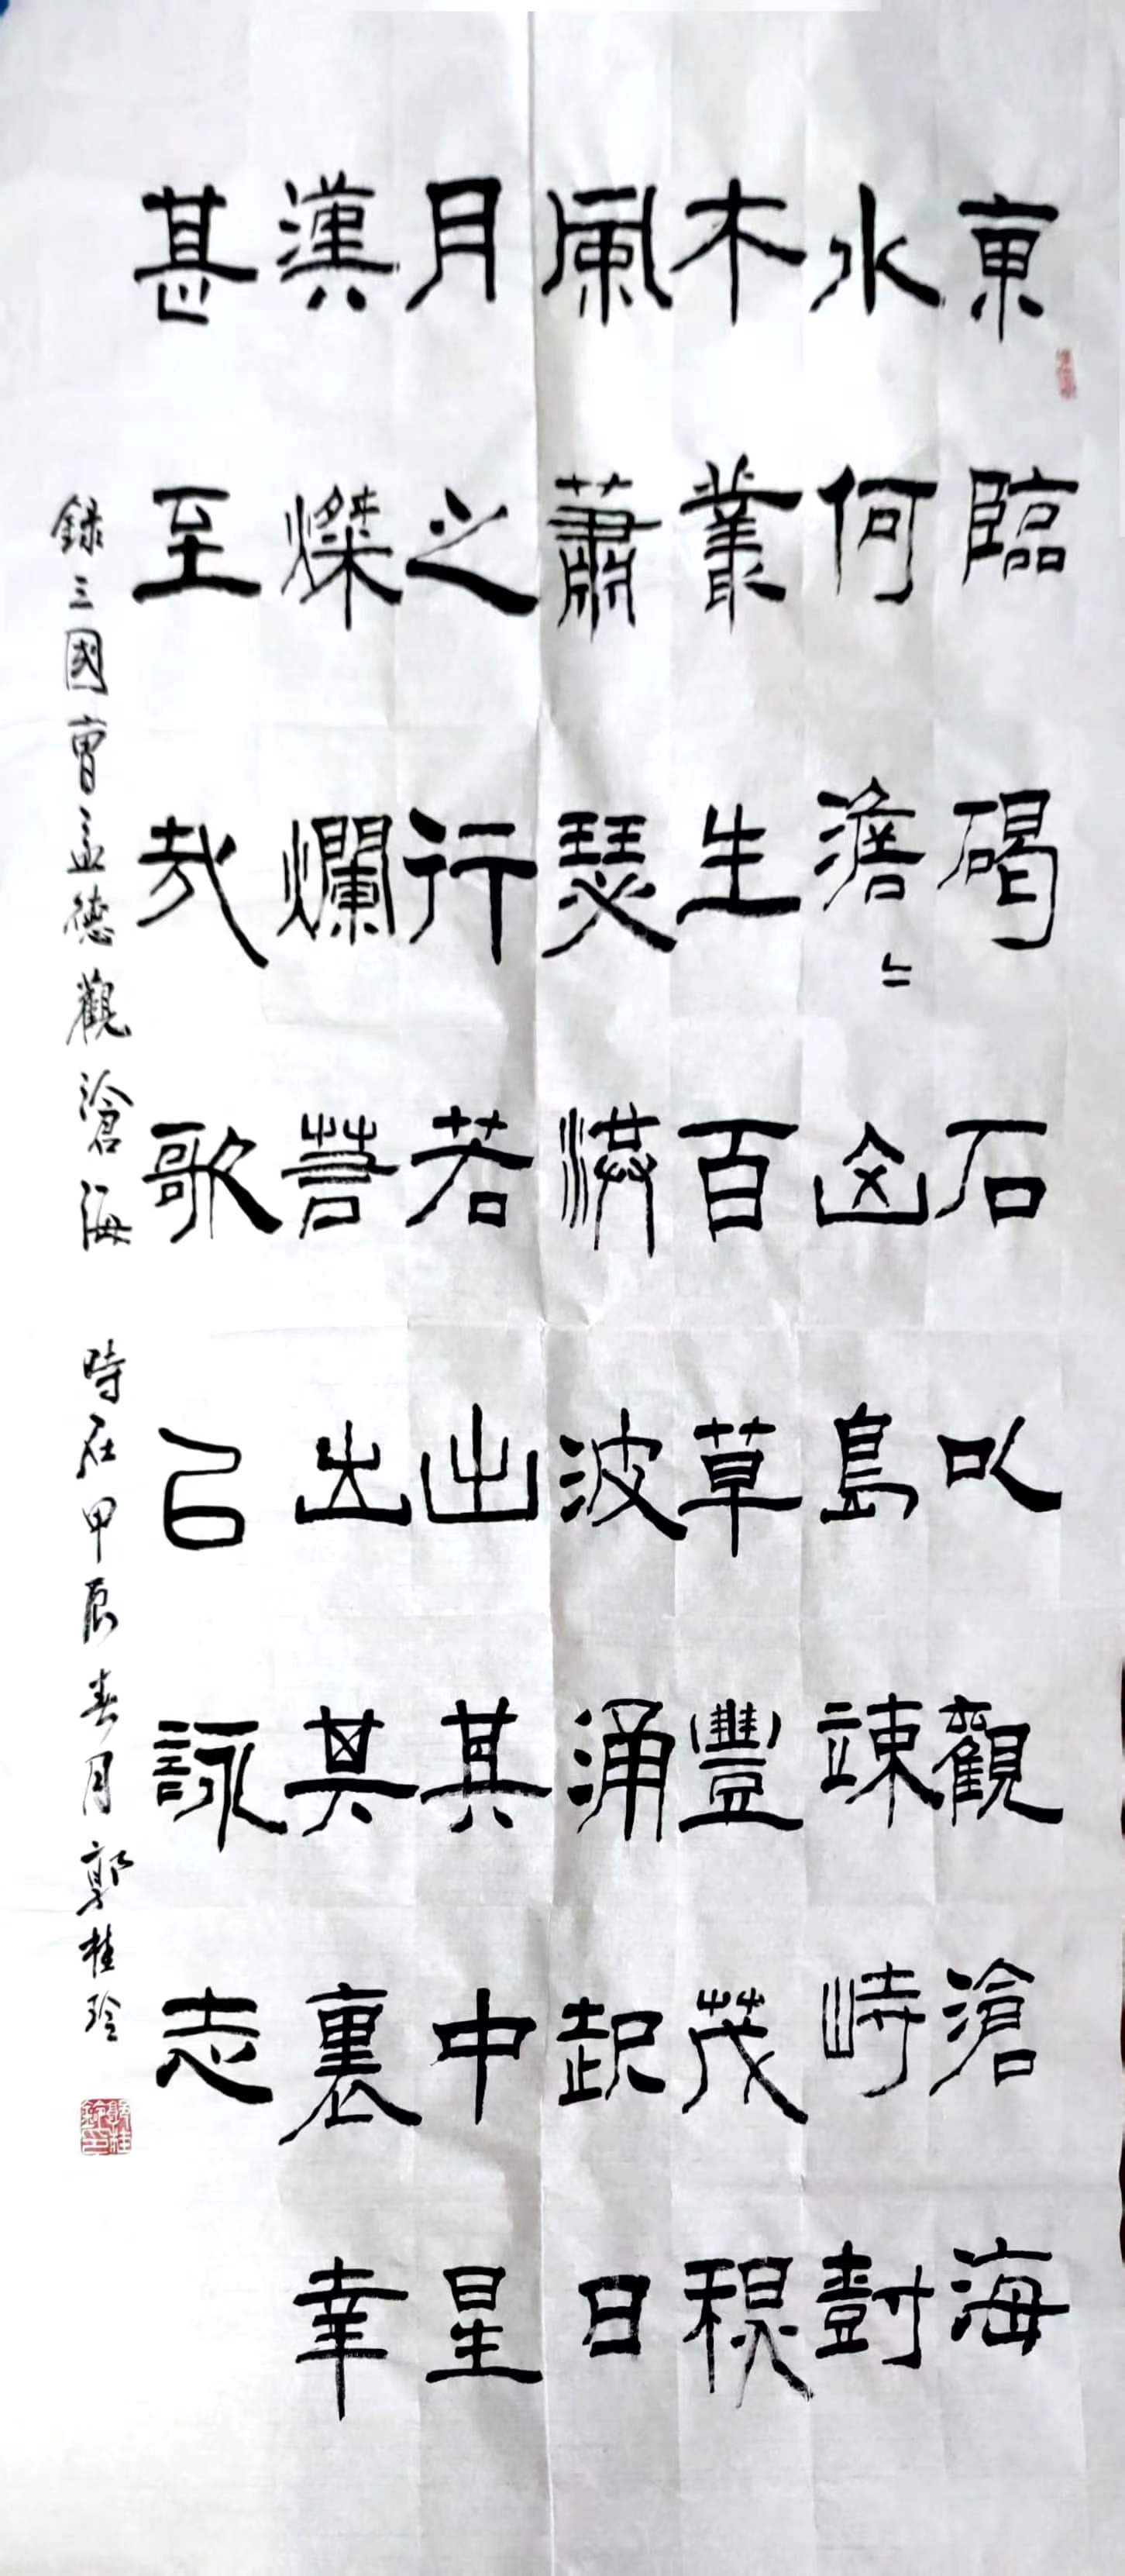 東臨碣石以觀滄海
水何澹〻山島竦峙尌
木叢生百草豐茂秋
風蕭瑟洪波涌起日
月之行若出其中星
漢燦爛若出其裏幸
甚至哉歌以詠志
録三國曹孟德觀滄海 時在甲辰春月郭桂玲